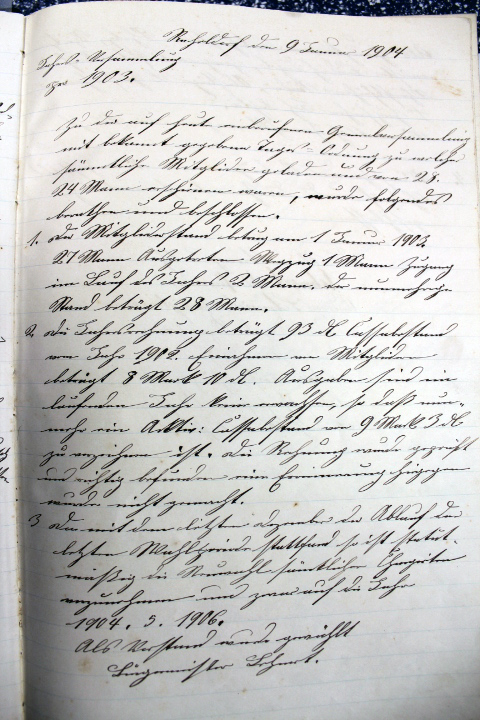 den 9 Januar 1904
Jahres-Versammlung
pro 1903.
Zu der auf heute einberufenen Generalversammlung
mit bekannt gegebener Tages-Ordnung zu welcher
sämmtliche Mitglieder geladen und von 28
24 Mann erschienen waren, wurde folgendes
berathen und beschlossen.
1. Der Mitgliederstand betrug am 1 Januar 1903
27 Mann Ausgetreten Wegzug 1 Mann Zugang
im Lauf des Jahres 2 Mann, der nunmehrige
Stand beträgt 28 Mann.
2. Die Jahresrechnung beträgt 93 d Cassabestand
vom Jahr 1902. Einnahmen von Mitglieder
beträgt 8 Mark 10 d. Ausgaben sind im
laufenden Jahr keine erwachsen, so daß nun-
mehr ein Aktiv: Cassabestand von 9 Mark 3 d
zu verzeichnen ist. Die Rechnung wurde geprüft
und richtig befunden eine Erinnerung hiegegen
wurde nicht gemacht.
3 Da mit dem letzten Dezember der Ablauf der
letzten Wahlperiode stattfand so ist statut-
mäßig die Neuwahl sämtlicher Chargirten
vorzunehmen und zwar auf die Jahr
1904. 5. 1906.
Als Vorstand wurde gewählt
Bürgermeister